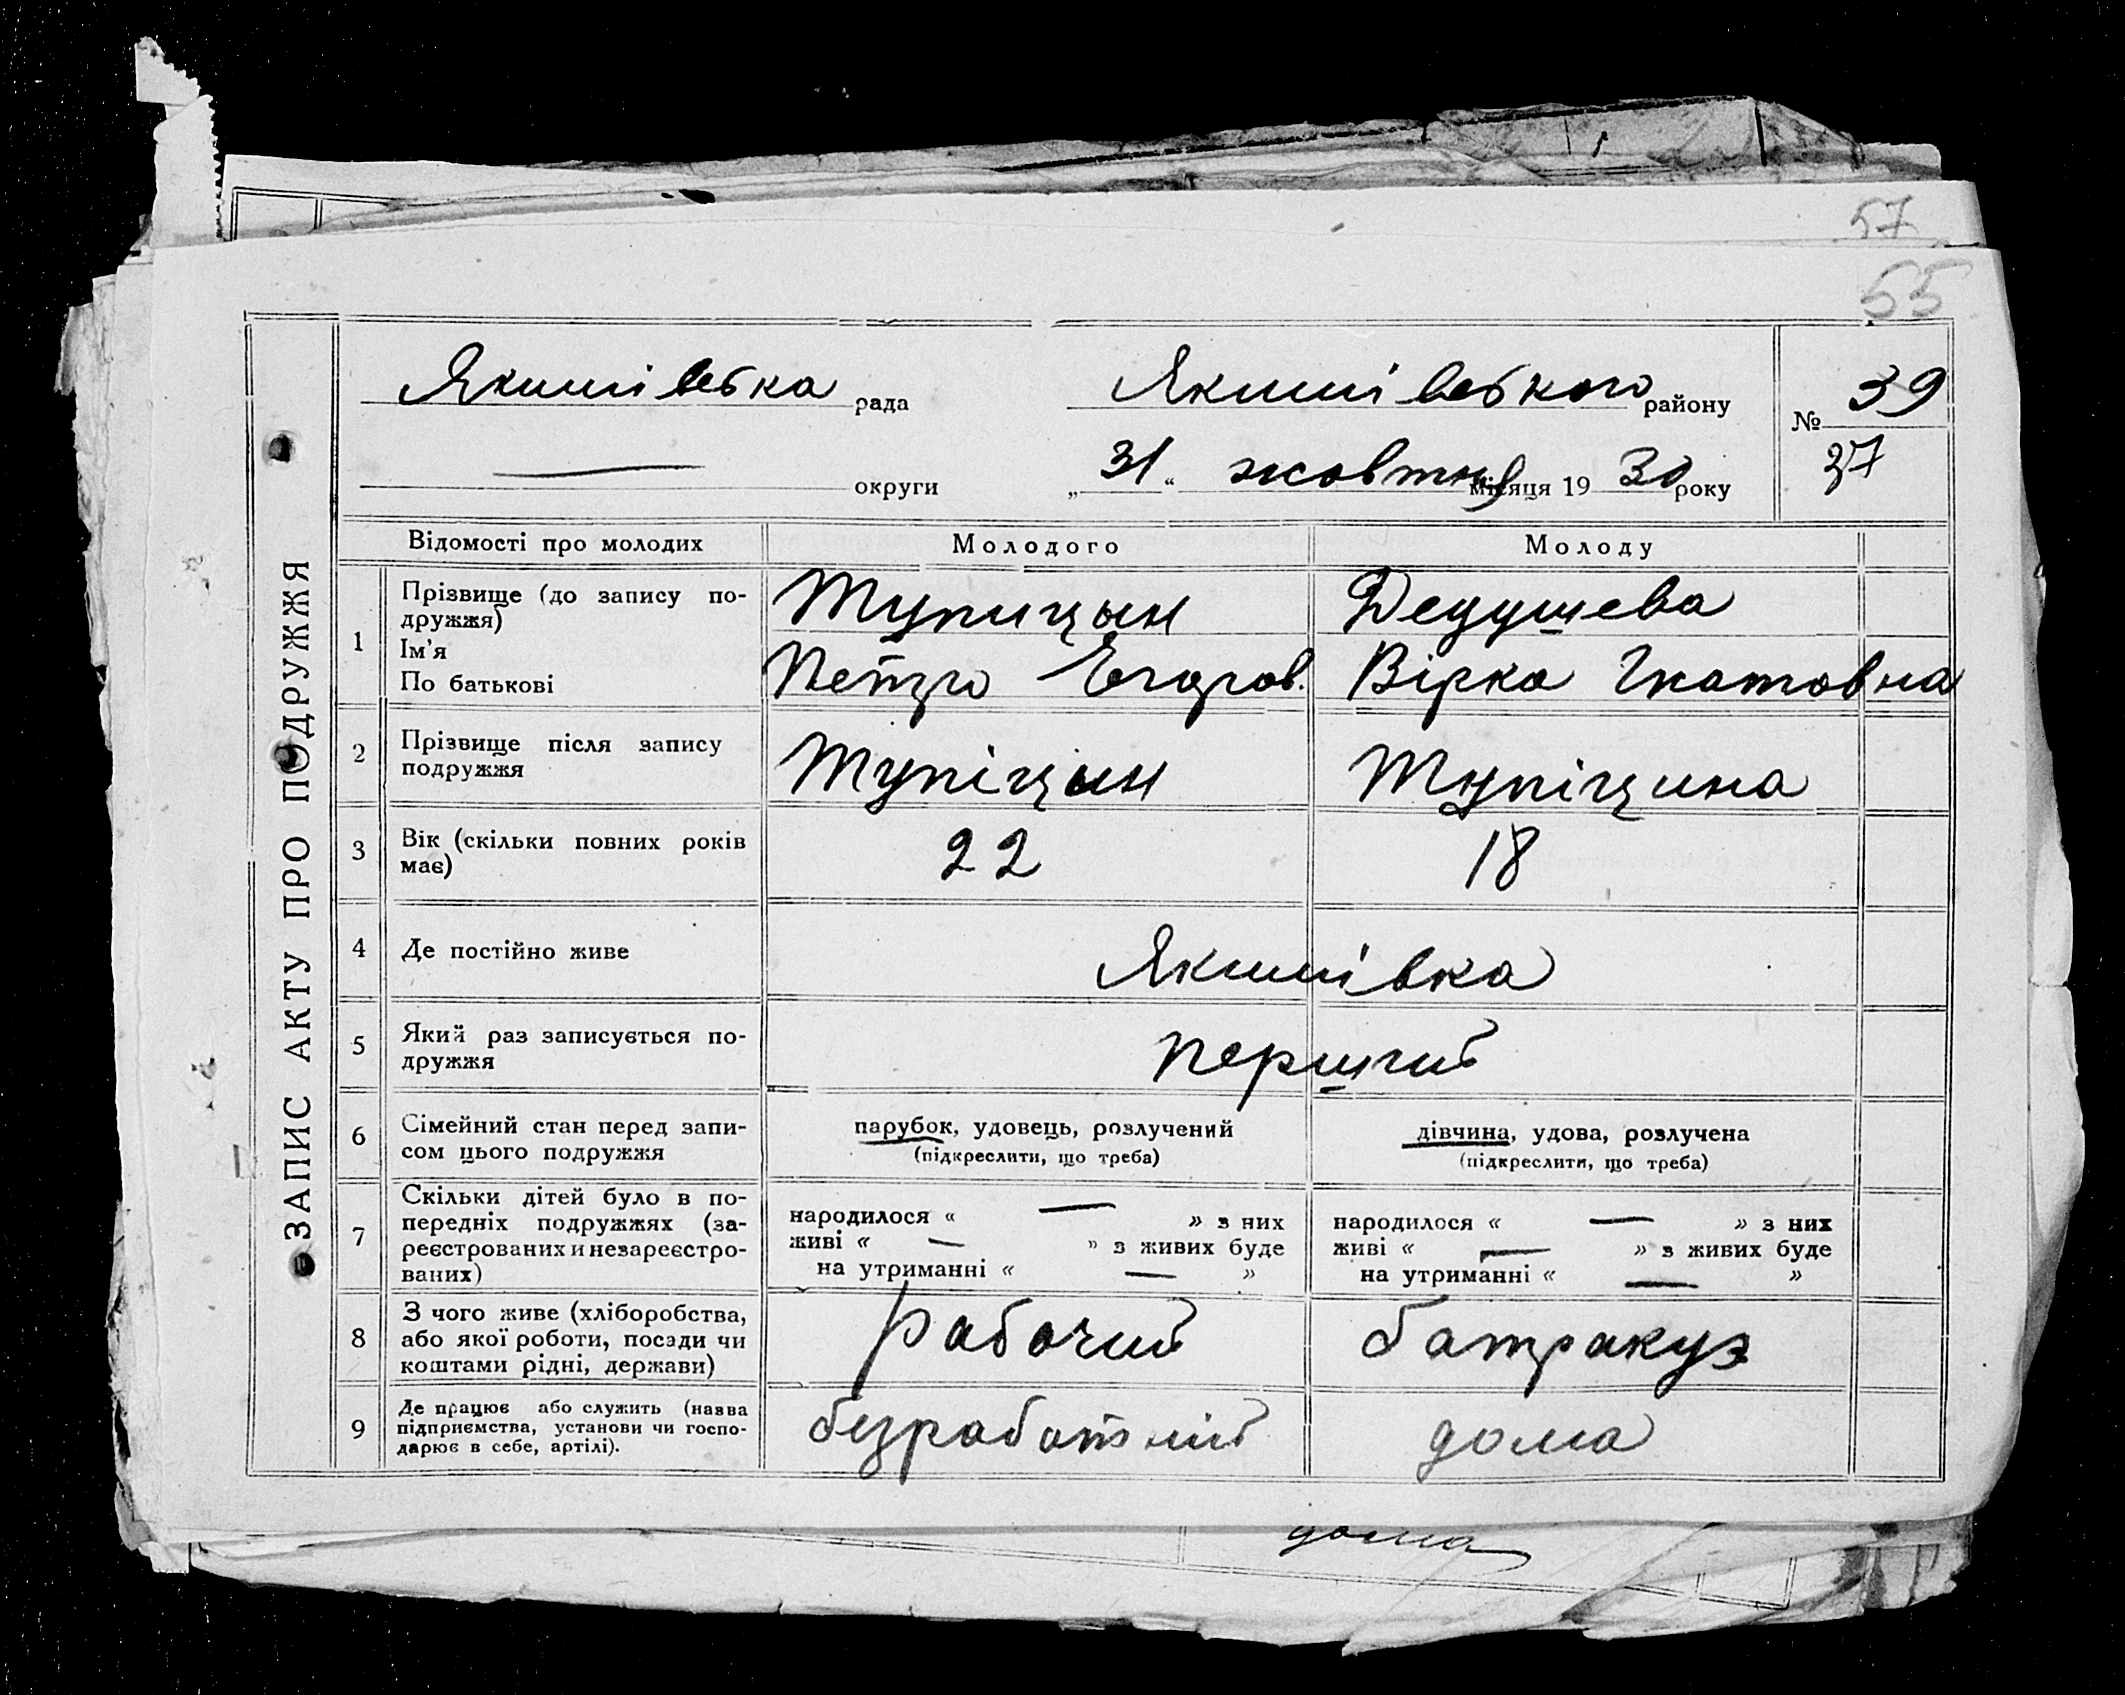 57
55
ЗАПИС АКТУ ПРО ПОДРУЖЖЯ
Якимівська рада Якимівського району № 39
округи „31“ жовтня місяця 1930 року 37
Відомості про молодих Молодого Молоду
1 Прізвище (до запису по-
дружжя) Тупицын Дедушева
Ім'я
По батькові Петро Егоров. Вірка Гнатовна
2 Прізвище після запису
подружжя Тупіцин Тупіцина
3 Вік (скільки повних років
має) 22 18
4 Де постійно живе Якимівка
5 Який раз записується по-
дружжя перший
6 Сімейний стан перед запи-
сом цього подружжя
парубок, удовець, розлучений
(підкреслити, що треба)
дівчина, удова, розлучена
(підкреслити, що треба)
7 Скільки дітей було в по-
передніх подружжях (за-
реєстрованих и незареєстро-
ваних)
народилося « — » з них
живі « — » з живих буде
на утриманні « — »
народилося « — » з них
живі « — » з живих буде
на утриманні « — »
8 З чого живе (хліборобства,
або якої роботи, посади чи
коштами рідні, держави)
рабочий батракує
9 Де працює або служить (назва
підприємства, установи чи госпо-
дарює в себе, артілі).
безработний дома
дома